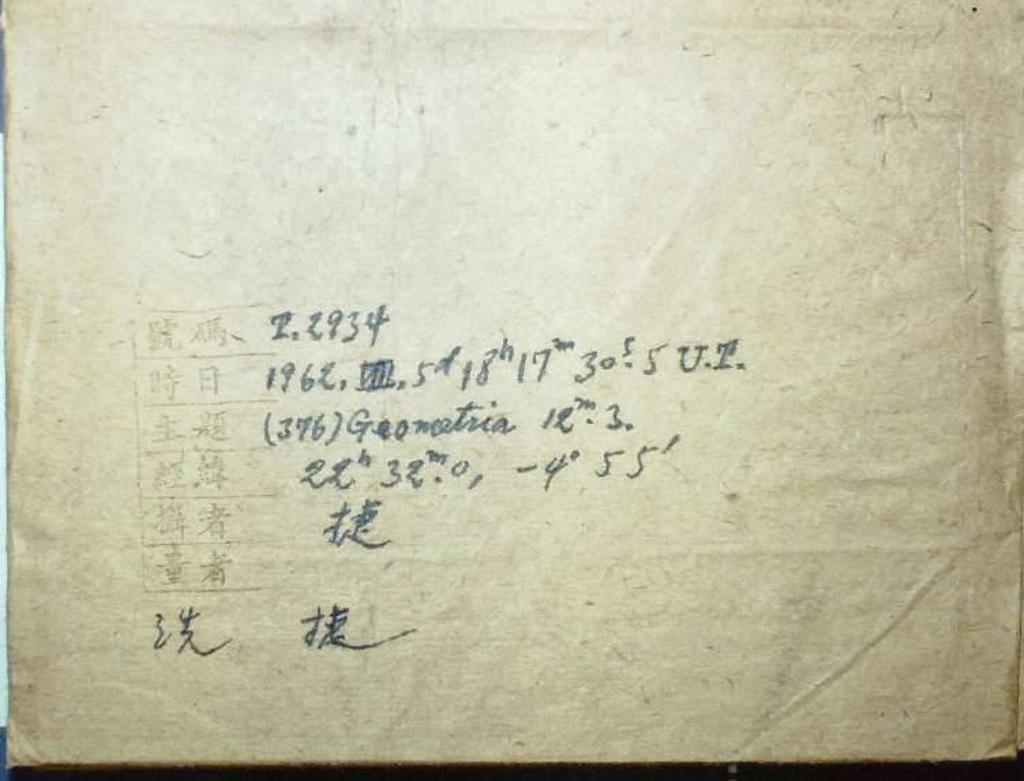 號碼 I.2934
時日 1962. VIII. 5ᵈ 18ʰ 17ᵐ 30ˢ.5 U.T.
主題 (376) Geometria 12ᵐ.3.
經緯 22ʰ 32ᵐ.0, -4° 55′
攝者 捷
量者
洗 捷